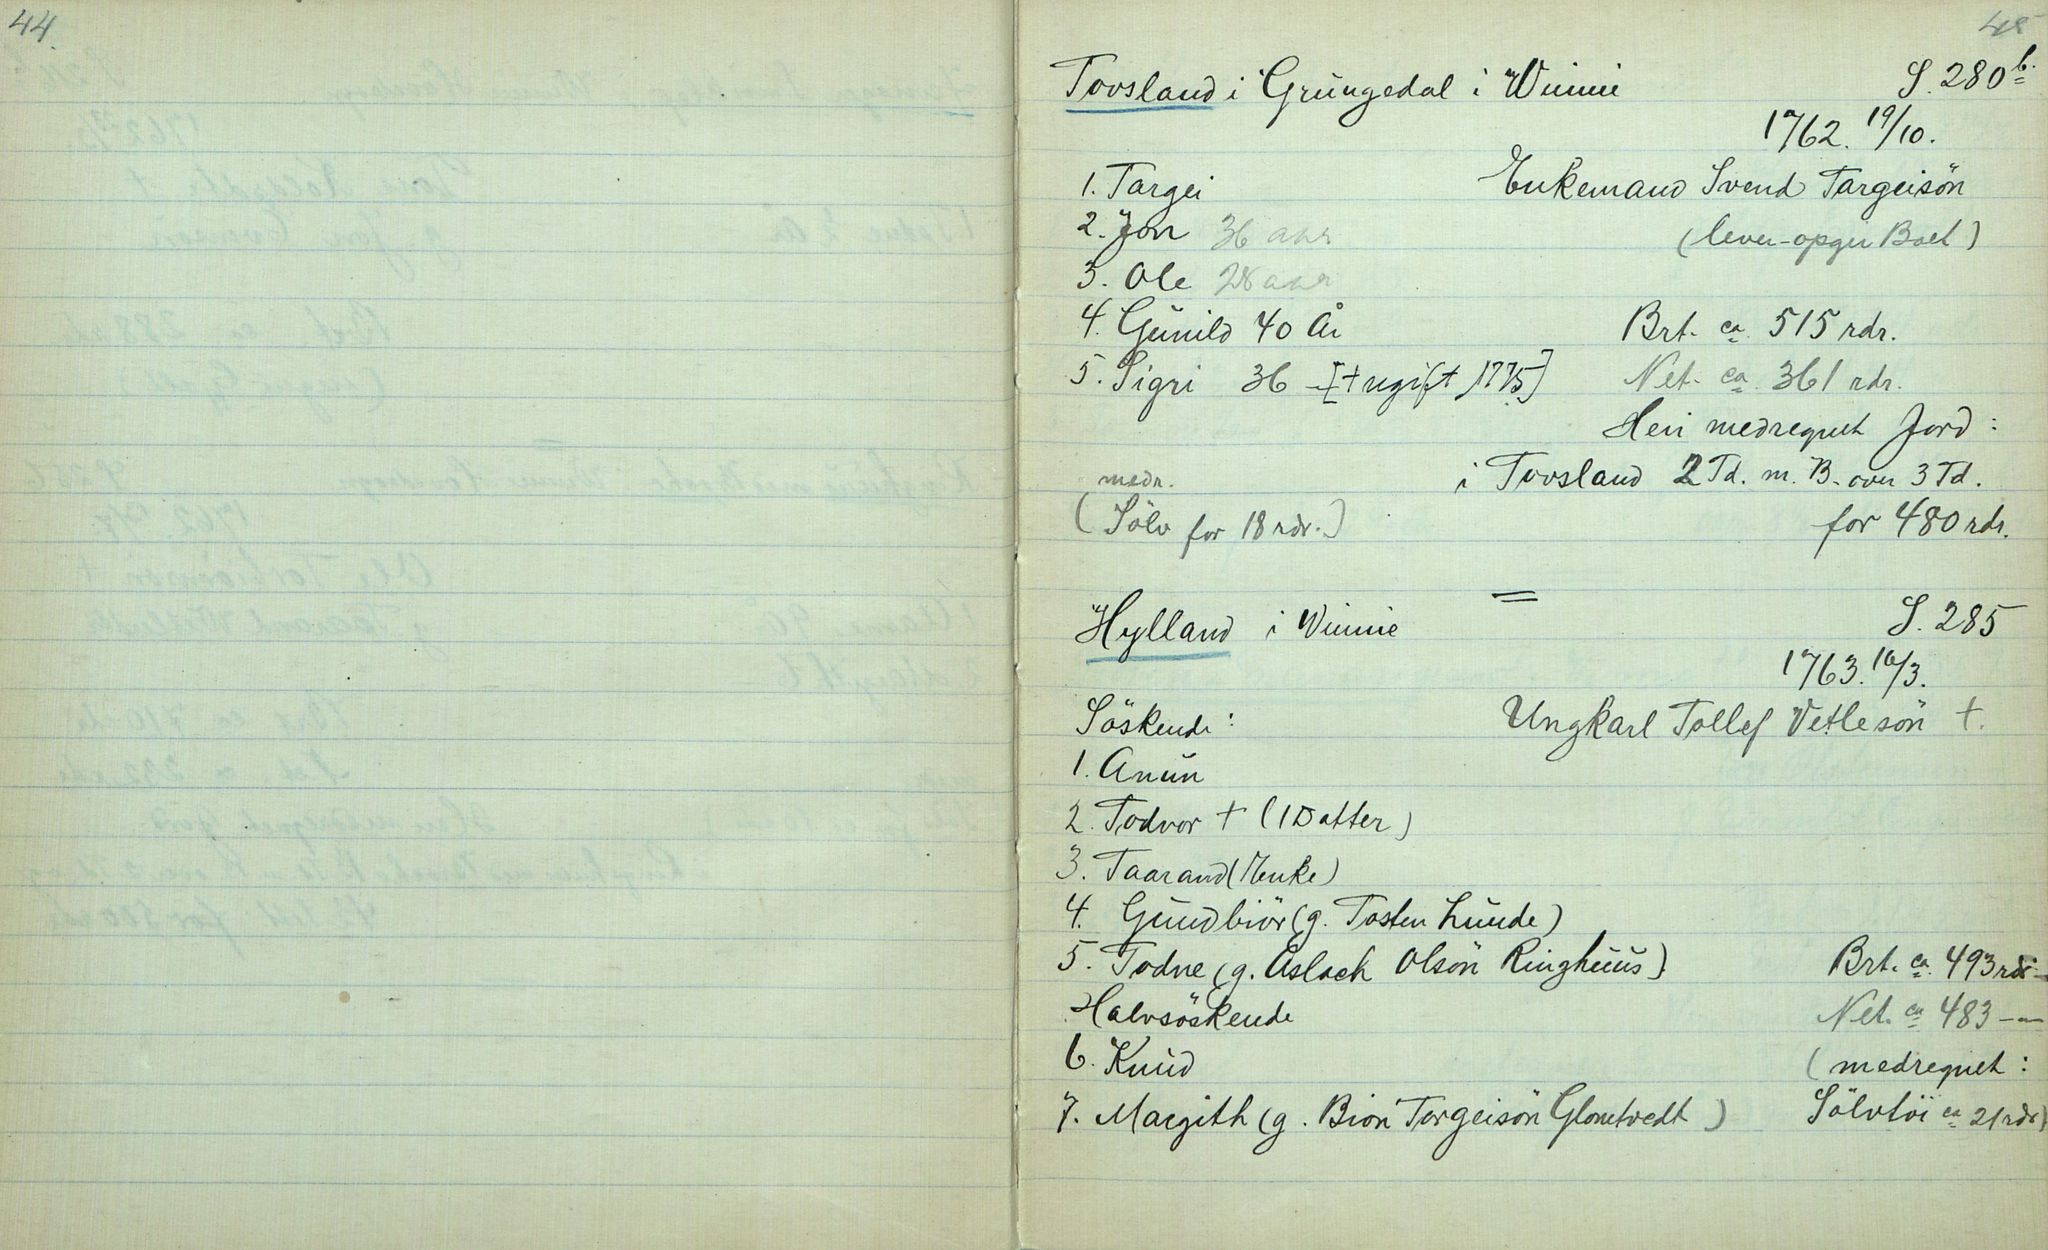 44.
45
Tovsland i Grüngedal i Winnie S. 280 b.
1762. 19/10.
1. Targei Enkemand Svend Targeisön
2. Jon 36 aar (lever - opgir Boet)
3. Ole 28 aar
4. Günild 40 År Brt. ca 515 rdr.
5. Sigri 36 - [† ugift 1775] Net. ca 361 rdr.
Heri medregnet Jord:
medr. i Tovsland 2 Td. m. B. over 3 Td.
(Sölv for 18 rdr.) for 480 rdr.
Hylland i Winnie S. 285
1763. 16/3.
Söskende: Ungkarl Tollef Vetlesön †.
1. Anün
2. Todvor † (1 Datter)
3. Taarand (Enke)
4. Gündbiör (g. Tosten Lünde)
5. Todne (g. Aslach Olsön Ringhüüs) Brt. ca 493 rdr
Halvsöskende Net. ca 483 —
6. Knüd (medregnet:
7. Margith (g. Biön Torgeisön Glometvedt) Sölvtöi ca 21 rdr)